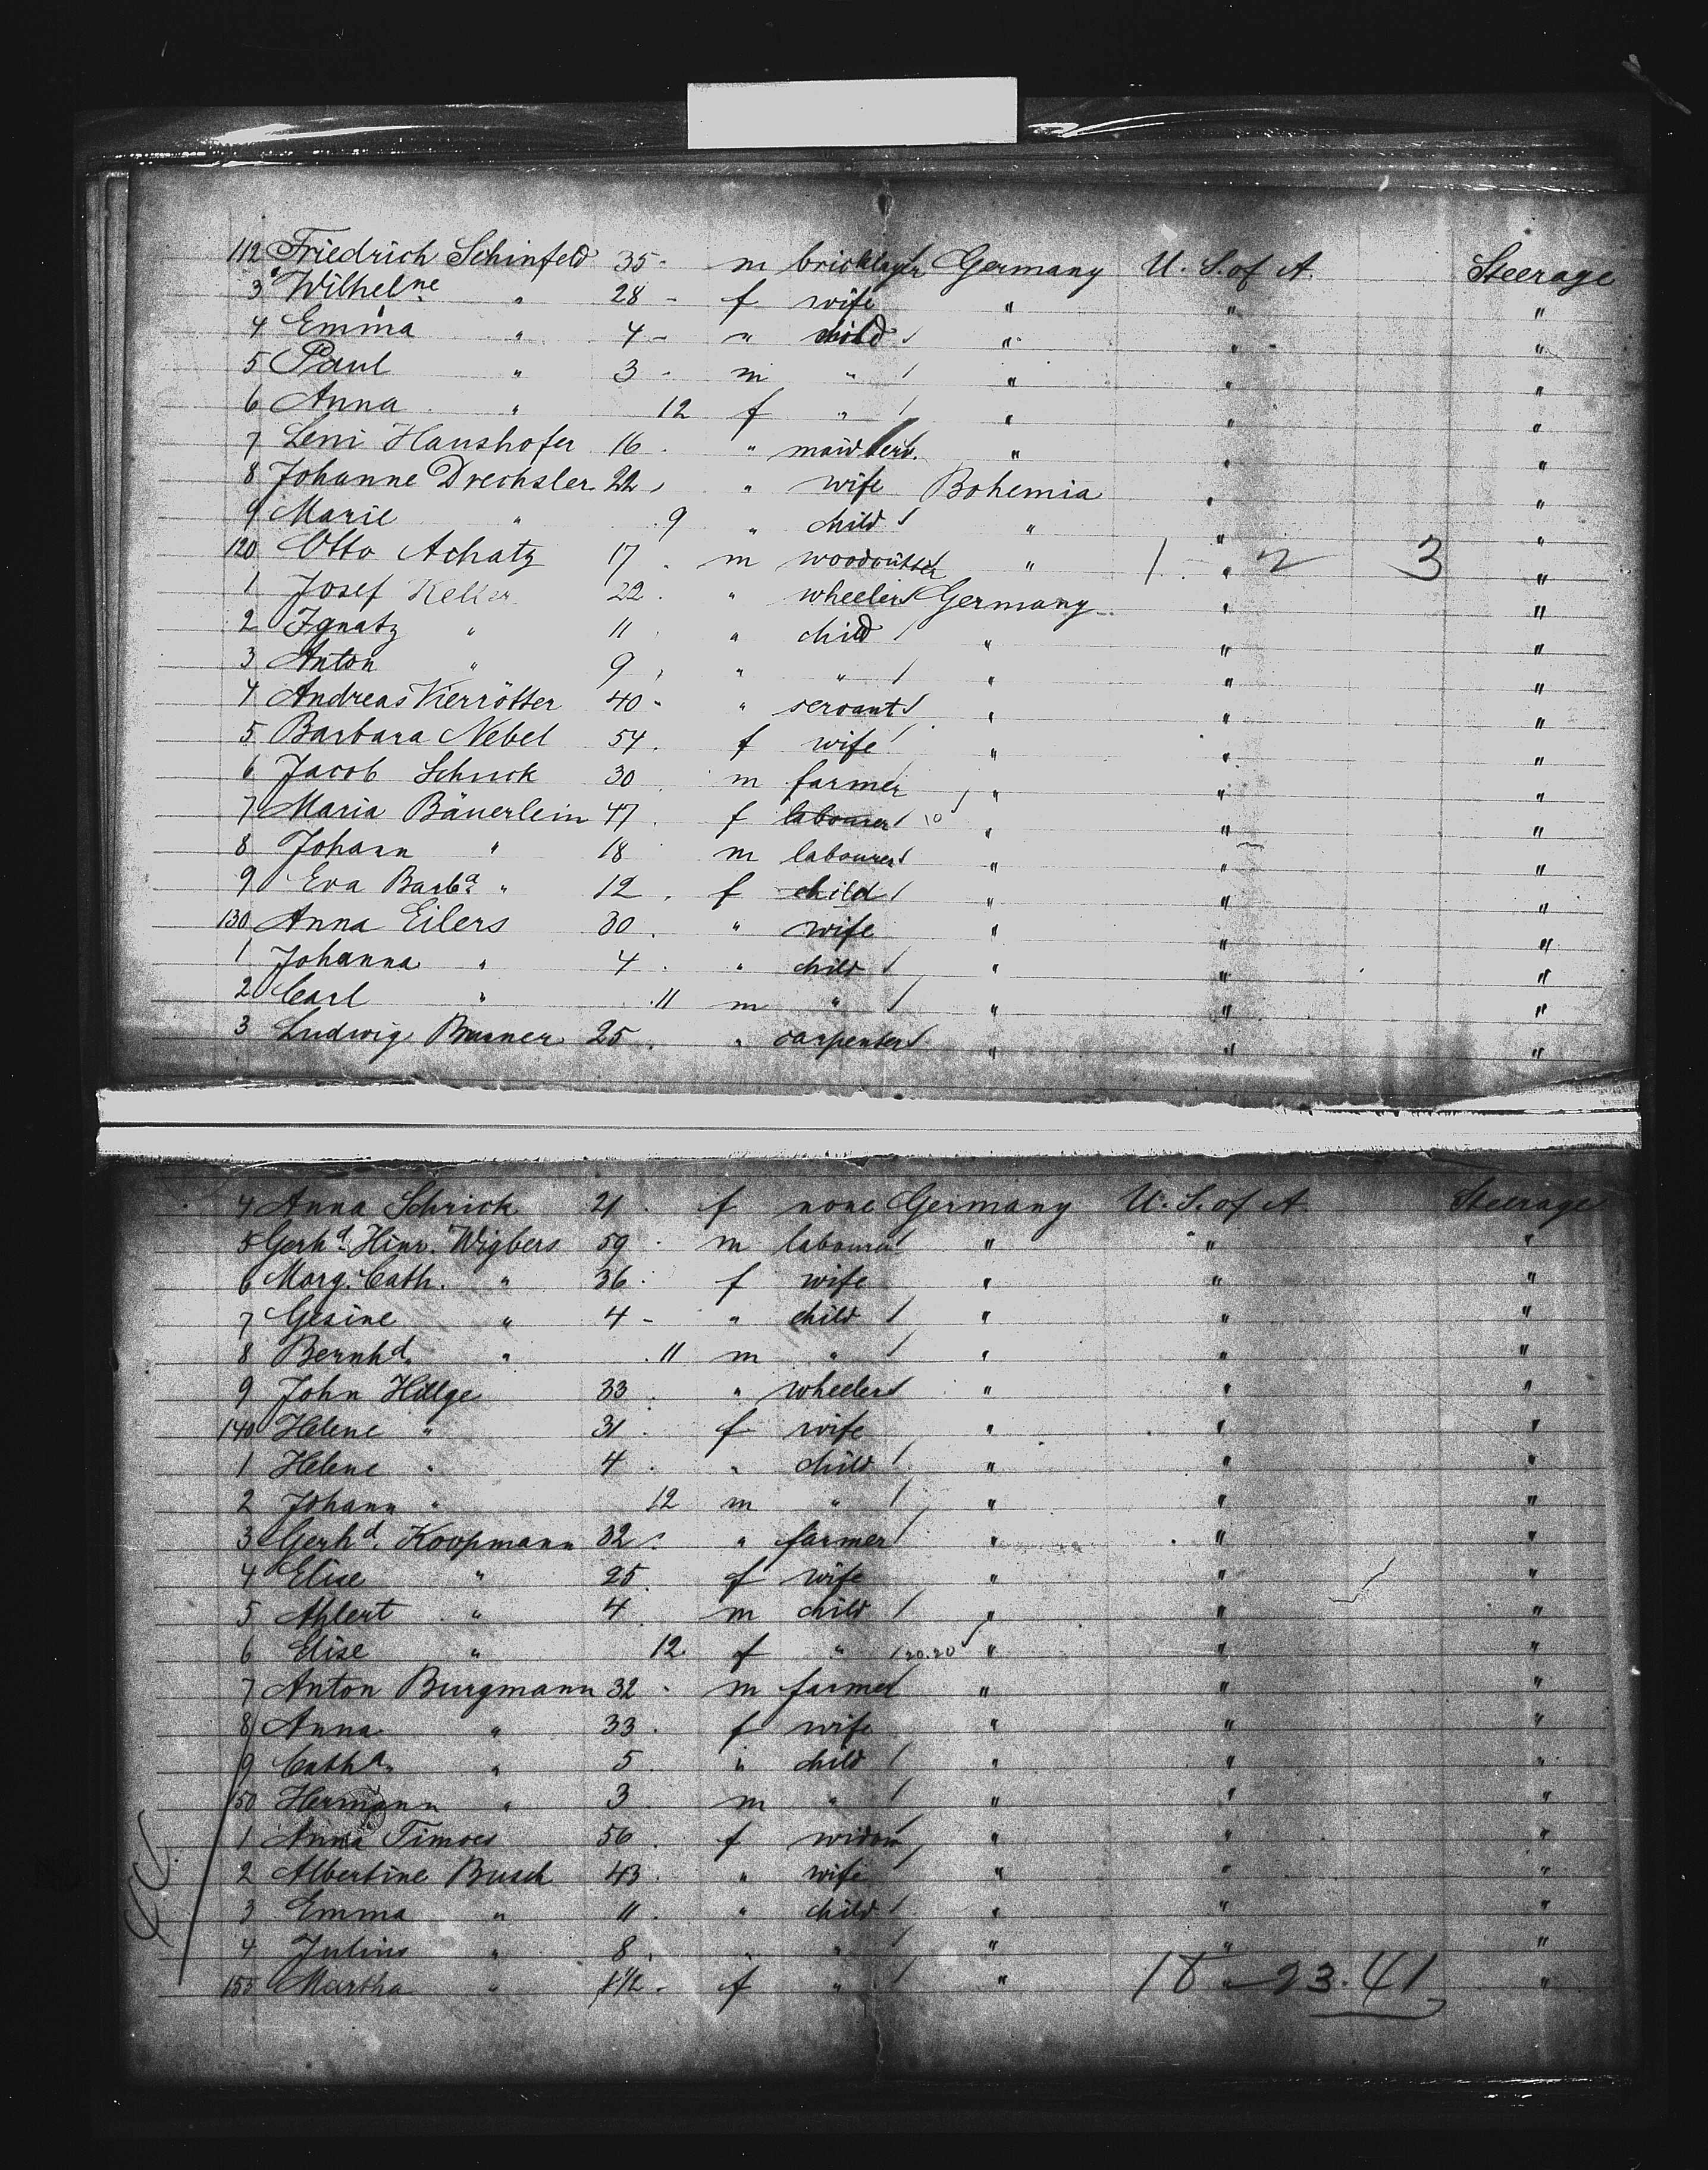 112 Friedrich Schinfeld 35 - m bricklayer Germany U. S. of A. Steerage
3 Wilhelne " 28 - f wife " " "
4 Emma " 4 - " child / " " "
5 Paul " 3 - m " / " " "
6 Anna " 12 f " / " " "
7 Leni Haushofer 16 . " maid serv. " " "
8 Johanne Drechsler 22 , " wife Bohemia " "
9 Marie " .9 " child / " " "
120 Otto Achatz 17 . m woodcutter " 1 - " 2 3 "
1 Josef Keller 22 . " wheeler / Germany " "
2 Ignatz " 11 . " child / " " "
3 Anton " 9 , " " / " " "
4 Andreas Vierrötter 40 - " servant / " " "
5 Barbara Nebel 54 . f wife / " " "
6 Jacob Schuck 30 . m farmer / " " "
7 Maria Bäuerlein 47 . f labourer / 10 " " "
8 Johann " 18 m labourer / " " "
9 Eva Barba " 12 . f child / " " "
130 Anna Eilers 30 . " wife " " "
1 Johanna " 4 . " child / " " "
2 Carl " .11 m " / " " "
3 Ludwig 25 . " carpenter / " " "
4 Anna Schrick 21 . f none Germany U. S. of A. Steerage
5 Gerhd. Hinr. Wigbers 59 . m labourer / " " "
6 Marg. Cath. " 36 . f wife " " "
7 Gesine " 4 - " child / " " "
8 Bernhd. " .11 m " / " " "
9 John Hillge 33 . " wheeler / " " "
140 Helene " 31 . f wife " " "
1 Helene " 4 . " child / " " "
2 Johann " 12 m " / " " "
3 Gerhd. Koopmann 32 . " farmer / " " "
4 Elise " 25 . f wife " " "
5 Ahlert " 4 m child / " " "
6 Elise " 12. f " / 20.20 " " "
7 Anton Burgmann 32 - m farmer / " " "
8 Anna " 33 . f wife " " "
9 Catha. " 5 . " child / " " "
150 Hermann " 3 . m " / " " "
1 Anna Timoes 56 . f widow / " " "
2 Albertine Busch 43 . " wife " " "
3 Emma " 11 . " child / " " "
4 Julius " 8 . " " / " " "
155 Martha " 1 1/2 - f " / " 18 " 23. 41 "